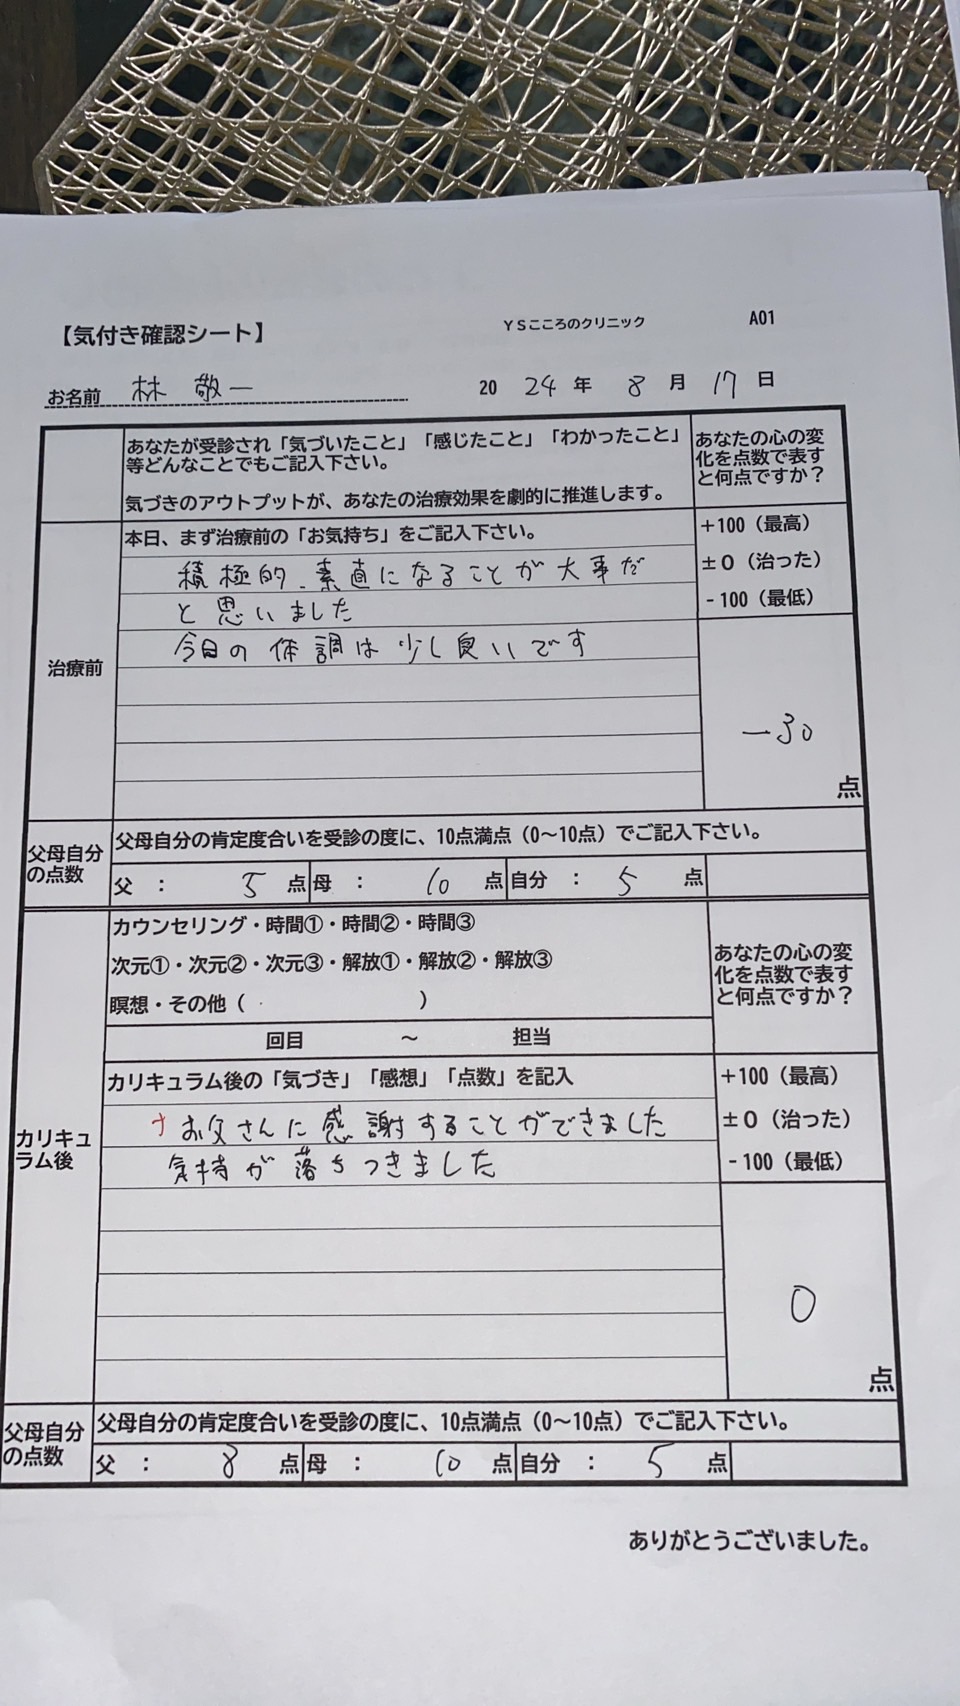 【気付き確認シート】 ＹＳこころのクリニック A01
お名前 林 敬一 20 24 年 8 月 17 日
あなたが受診され「気づいたこと」「感じたこと」「わかったこと」
等どんなことでもご記入下さい。
気づきのアウトプットが、あなたの治療効果を劇的に推進します。
あなたの心の変
化を点数で表す
と何点ですか？
治療前
本日、まず治療前の「お気持ち」をご記入下さい。
積極的、素直になることが大事だ
と思いました
今日の体調は少し良いです
＋100（最高）
±０（治った）
－100（最低）
－30
点
父母自分
の点数
父母自分の肯定度合いを受診の度に、10点満点（0～10点）でご記入下さい。
父 ： 5 点 母 ： 10 点 自分 ： 5 点
カリキュ
ラム後
カウンセリング・時間①・時間②・時間③
次元①・次元②・次元③・解放①・解放②・解放③
瞑想・その他（ ）
回目 ～ 担当
あなたの心の変
化を点数で表す
と何点ですか？
カリキュラム後の「気づき」「感想」「点数」を記入
お父さんに感謝することができました
気持が落ちつきました
＋100（最高）
±０（治った）
－100（最低）
0
点
父母自分
の点数
父母自分の肯定度合いを受診の度に、10点満点（0～10点）でご記入下さい。
父 ： 8 点 母 ： 10 点 自分 ： 5 点
ありがとうございました。